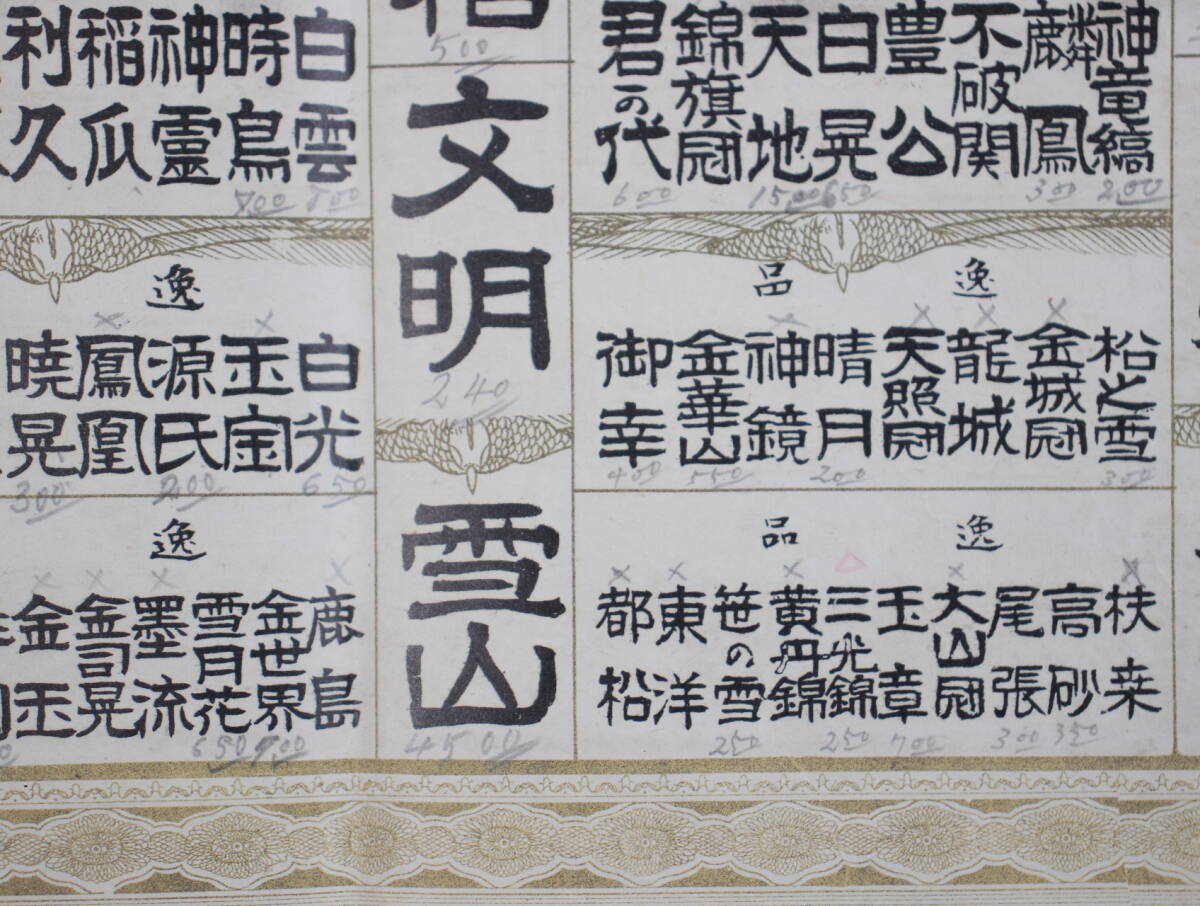 神竜縞
2.00
麟鳳
300
不破関
豊公
白晃
650
天地
15,00
錦旗冠
君の代
600
逸品
松之雪
300
金城冠
龍城
天照冠
晴月
200
神鏡
金華山
550
御幸
400
逸品
扶桒
高砂
350
尾張
300
大山冠
玉章
700
三光錦
250
黄丹錦
笹の雪
250
東洋
都松
500
文明
240
雪山
4500
白雲
800
時鳥
700
神靈
稲瓜
利久
逸
白光
650
玉宝
源氏
200
鳳凰
暁晃
300
逸
鹿島
金世界
雪月花
650
墨流
金司晃
金玉